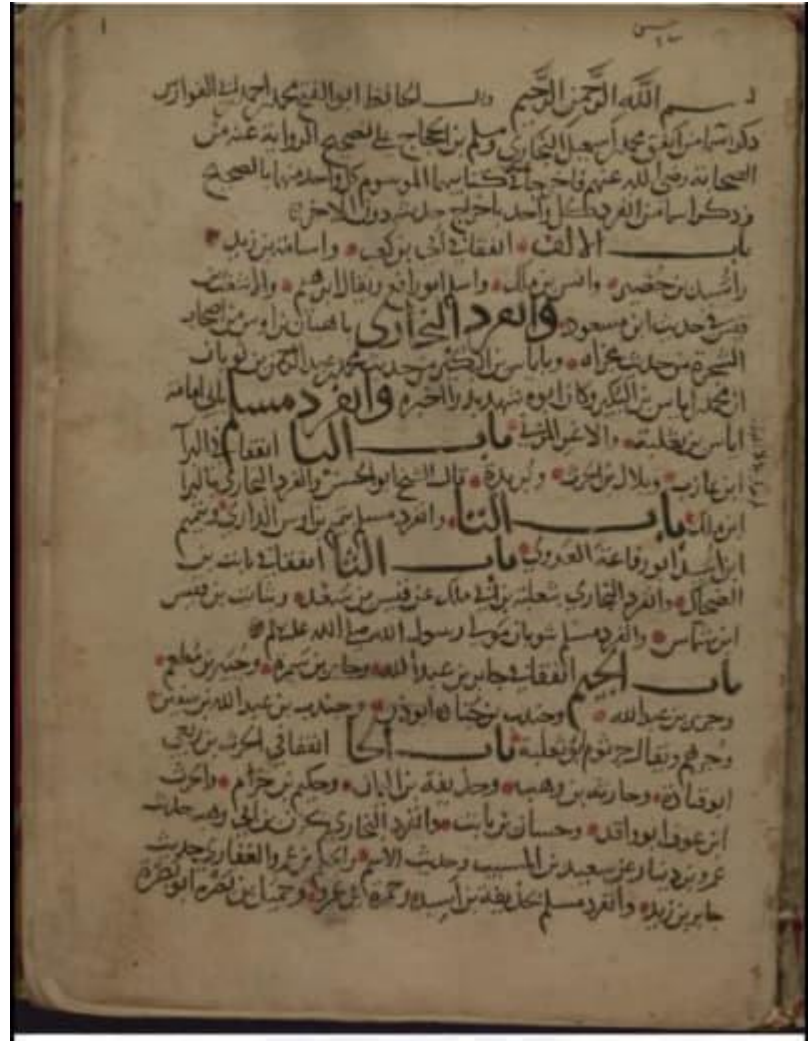 1
بسم الله الرحمن الرحيم قال الحافظ ابو الفتح محمد بن احمد بن ابي الفوارس
ذكر اسامي من اتفق محمد بن اسمعيل البخاري ومسلم بن الحجاج على تصحيح الرواية عنه من
الصحابة رضي الله عنهم واخرجا في كتابيهما الموسوم كل واحد منهما بالصحيح
وذكر اسامي من انفرد كل واحد باخراج حديثه دون الاخر
باب الالف اتفقا في أبي بن كعب واسامة بن زيد
وأُسيد بن حضير وانس بن ملك واسلم ابو رافع ويقال ابرهيم والاشعث بن
قيس في حديث ابن مسعود وانفرد البخاري باهبان بن اوس من اصحاب
الشجرة من حديث مجزأة وباياس بن البكير من حديث محمد بن عبد الرحمن بن ثوبان
ان محمد بن اياس بن البكير وكان ابوه شهد بدرا اخبره وانفرد مسلم بابي امامة
اياس بن ثعلبة والاغر المزني باب البا اتفقا في البرآ
ابن عازب وبلال وبريدة قال الشيخ ابو الحسن وانفرد البخاري بالبرا
ابن ملك باب التا وانفرد مسلم بتميم بن اوس الداري وبتميم
ابن أسد ابو رفاعة العدوي باب الثا اتفقا في ثابت بن
الضحاك وانفرد البخاري بثعلبة بن ابي ملك عن قيس بن سعد وبثابت بن قيس
ابن شماس وانفرد مسلم بثوبان مولى رسول الله صلى الله عليه
باب الجيم اتفقا في جابر بن عبد الله وجابر بن سمرة وجبير بن مطعم
وجرير بن عبد الله وجندب بن جنادة ابو ذر وجندب بن عبد الله بن سفين
وجرهم ويقال جرثوم ابو ثعلبة باب الحا اتفقا في الحرث بن ربعي
ابو قتادة وحارثة بن وهب وحذيفة بن اليمان وحكيم بن حزام والحرث
ابن عوف ابو واقد وحسان بن ثابت وانفرد البخاري بحزن بن ابي وهب حديث
عمرو بن دينار عن سعيد بن المسيب وحديث الاسم والحكم بن عمرو الغفاري حديث
جابر بن زيد وانفرد مسلم بحذيفة بن أسيد وحمزة بن عمرو وحميل بن بصرة ابو بصرة